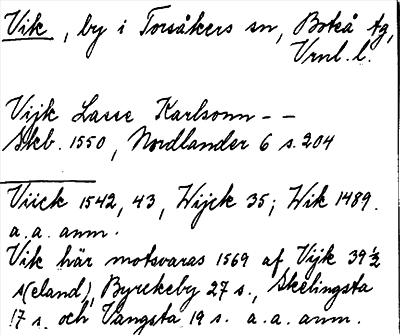 Vik, by i Torsåkers sn, Boteå tg,
Vrnl. l.
Vijk Lasse Karlsonn - -
Skb. 1550, Nordlander 6 s. 204
Viick 1542, 43, Wijck 35; Wik 1489.
a. a. anm.
Vik här motsvaras 1569 af Vijk 39 ½
s(eland), Byrekeby 27 s., Skelingsta
17 s. och Vangsta 19 s. a. a. anm.